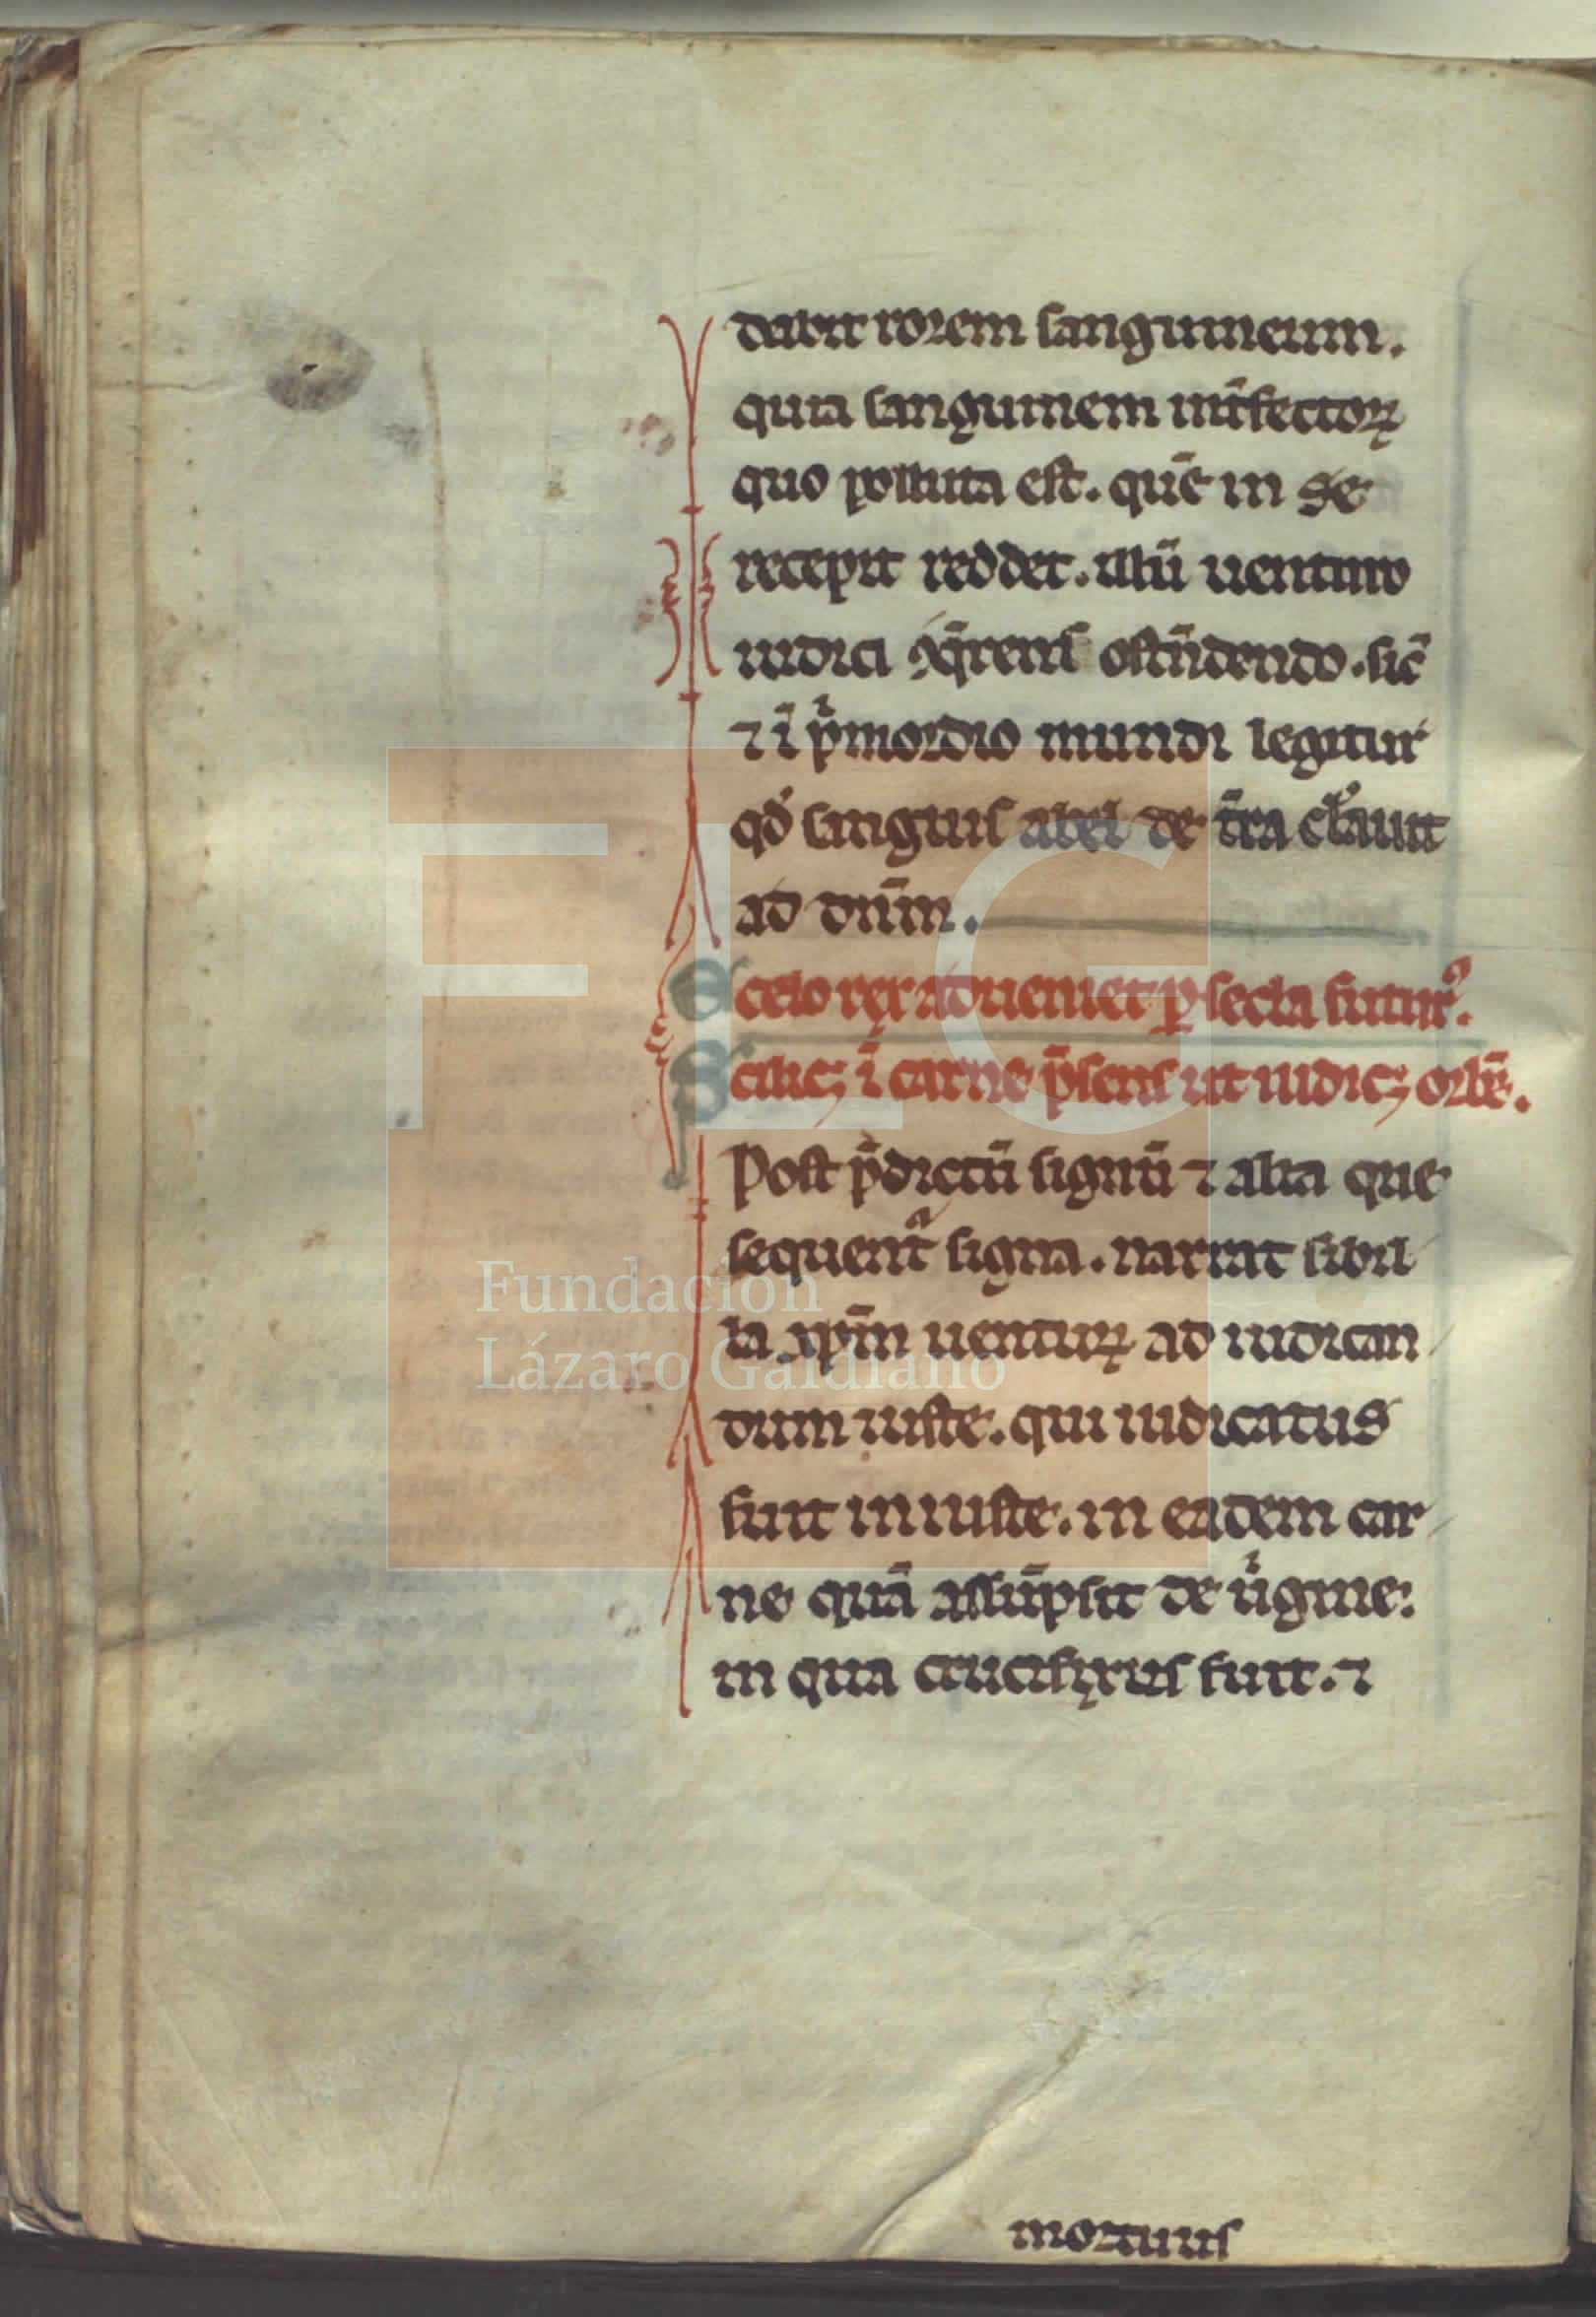 dabit rorem sanguineum.
quia sanguinem int̄fectoꝝ
quo polluta est. quē in se
recepit reddet. illū uenturo
iudici ostn̄dendo. sic̄
⁊ ī pⁱmordio mundi legitur
qđ sanguis abel de t̄ra cła᷒uit
ad dn̄m.
E celo rex adueniet ꝑ secla futurꝰ.
Scilicꝫ ī carne p̄sens ut iudicꝫ orbē.
Post p̄dictū signū ⁊ alia que
sequent᷑ signa. narrat sibil
la xp̄m uenturꝝ ad iudican
dum iuste. qui iudicatus
fuit iniuste. in eadem car
ne quā assūpsit de uⁱgine.
in qua crucifixus fuit. ⁊
mortuus
FLG
Fundación
Lázaro Galdiano